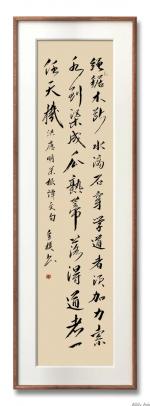 绳锯木断水滴石穿学道者须加力索
水到渠成瓜熟蒂落得道者一
任天机 洪应明菜根谭文句